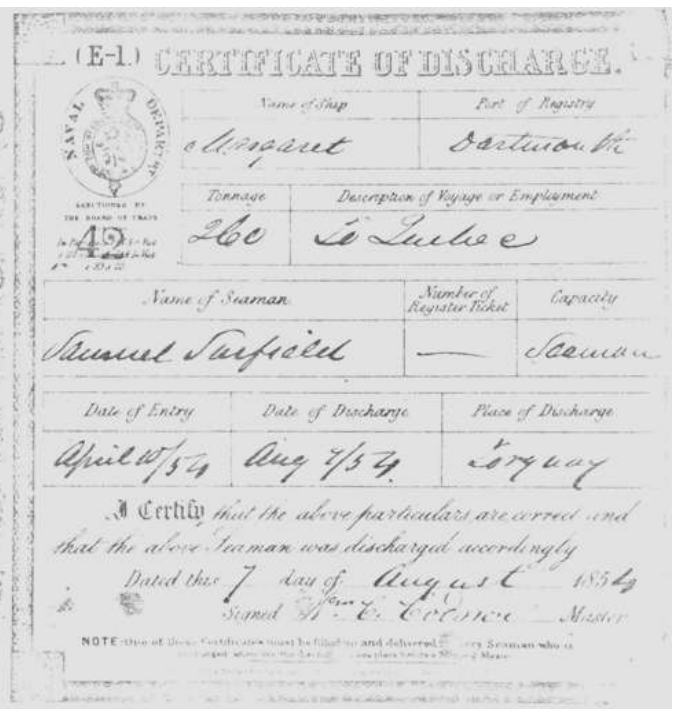 (E-1.) CERTIFICATE OF DISCHARGE.
NAVAL DEPARTMT
SANCTIONED BY
THE BOARD OF TRADE
42
Name of Ship Port of Registry
Margaret Dartmouth
Tonnage Description of Voyage or Employment
260 To Quebec
Name of Seaman Number of Register Ticket Capacity
Samuel — Seaman
Date of Entry Date of Discharge Place of Discharge
April 10/54 Aug 7/54 Torquay
I Certify that the above particulars are correct and
that the above Seaman was discharged accordingly
Dated this 7 day of August 1854
Signed Wm C. Master
NOTE. One of these Certificates must be filled up and delivered Seaman who is